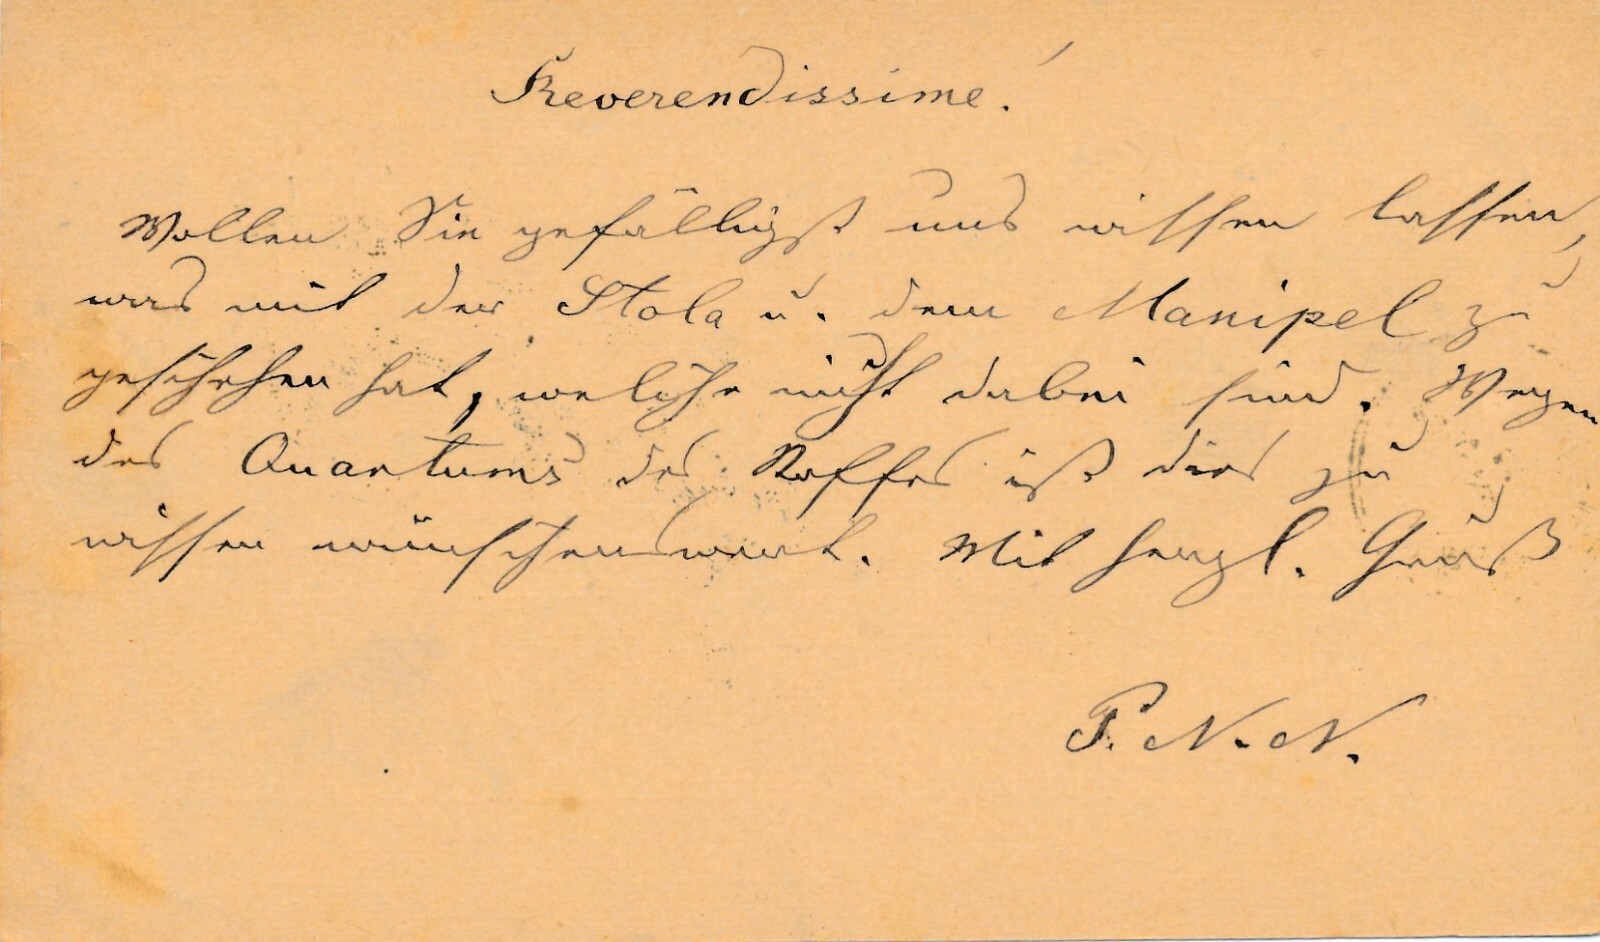 Reverendissime!
Wollen Sie gefälligst uns wissen lassen,
was mit der Stola u. dem Manipel zu
geschehen hat, welche nicht dabei sind. Wegen
des Quantums des Stoffes ist dies zu
wissen wünschenswert. Mit herzl. Gruß
P. N. N.